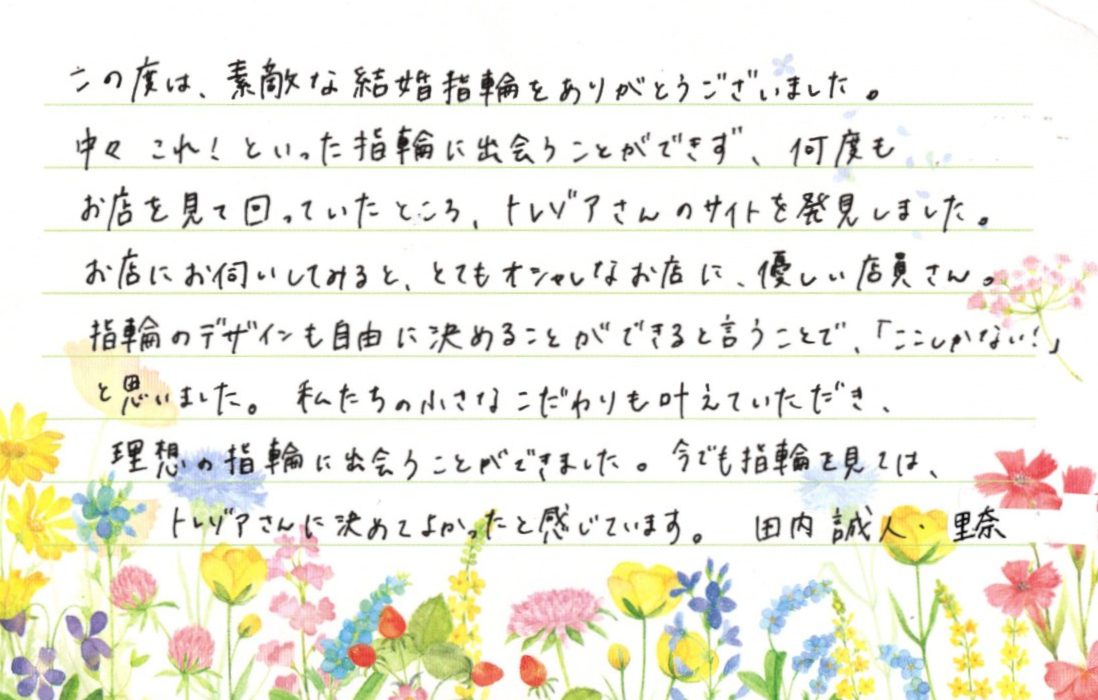 この度は、素敵な結婚指輪をありがとうございました。
中々 これ！といった指輪に出会うことができず、何度も
お店を見て回っていたところ、トレゾアさんのサイトを発見しました。
お店にお伺いしてみると、とてもオシャレなお店に、優しい店員さん。
指輪のデザインも自由に決めることができると言うことで、「ここしかない！」
と思いました。 私たちの小さなこだわりも叶えていただき、
理想の指輪に出会うことができました。今でも指輪を見ては、
トレゾアさんに決めてよかったと感じています。 田内 誠人・里奈